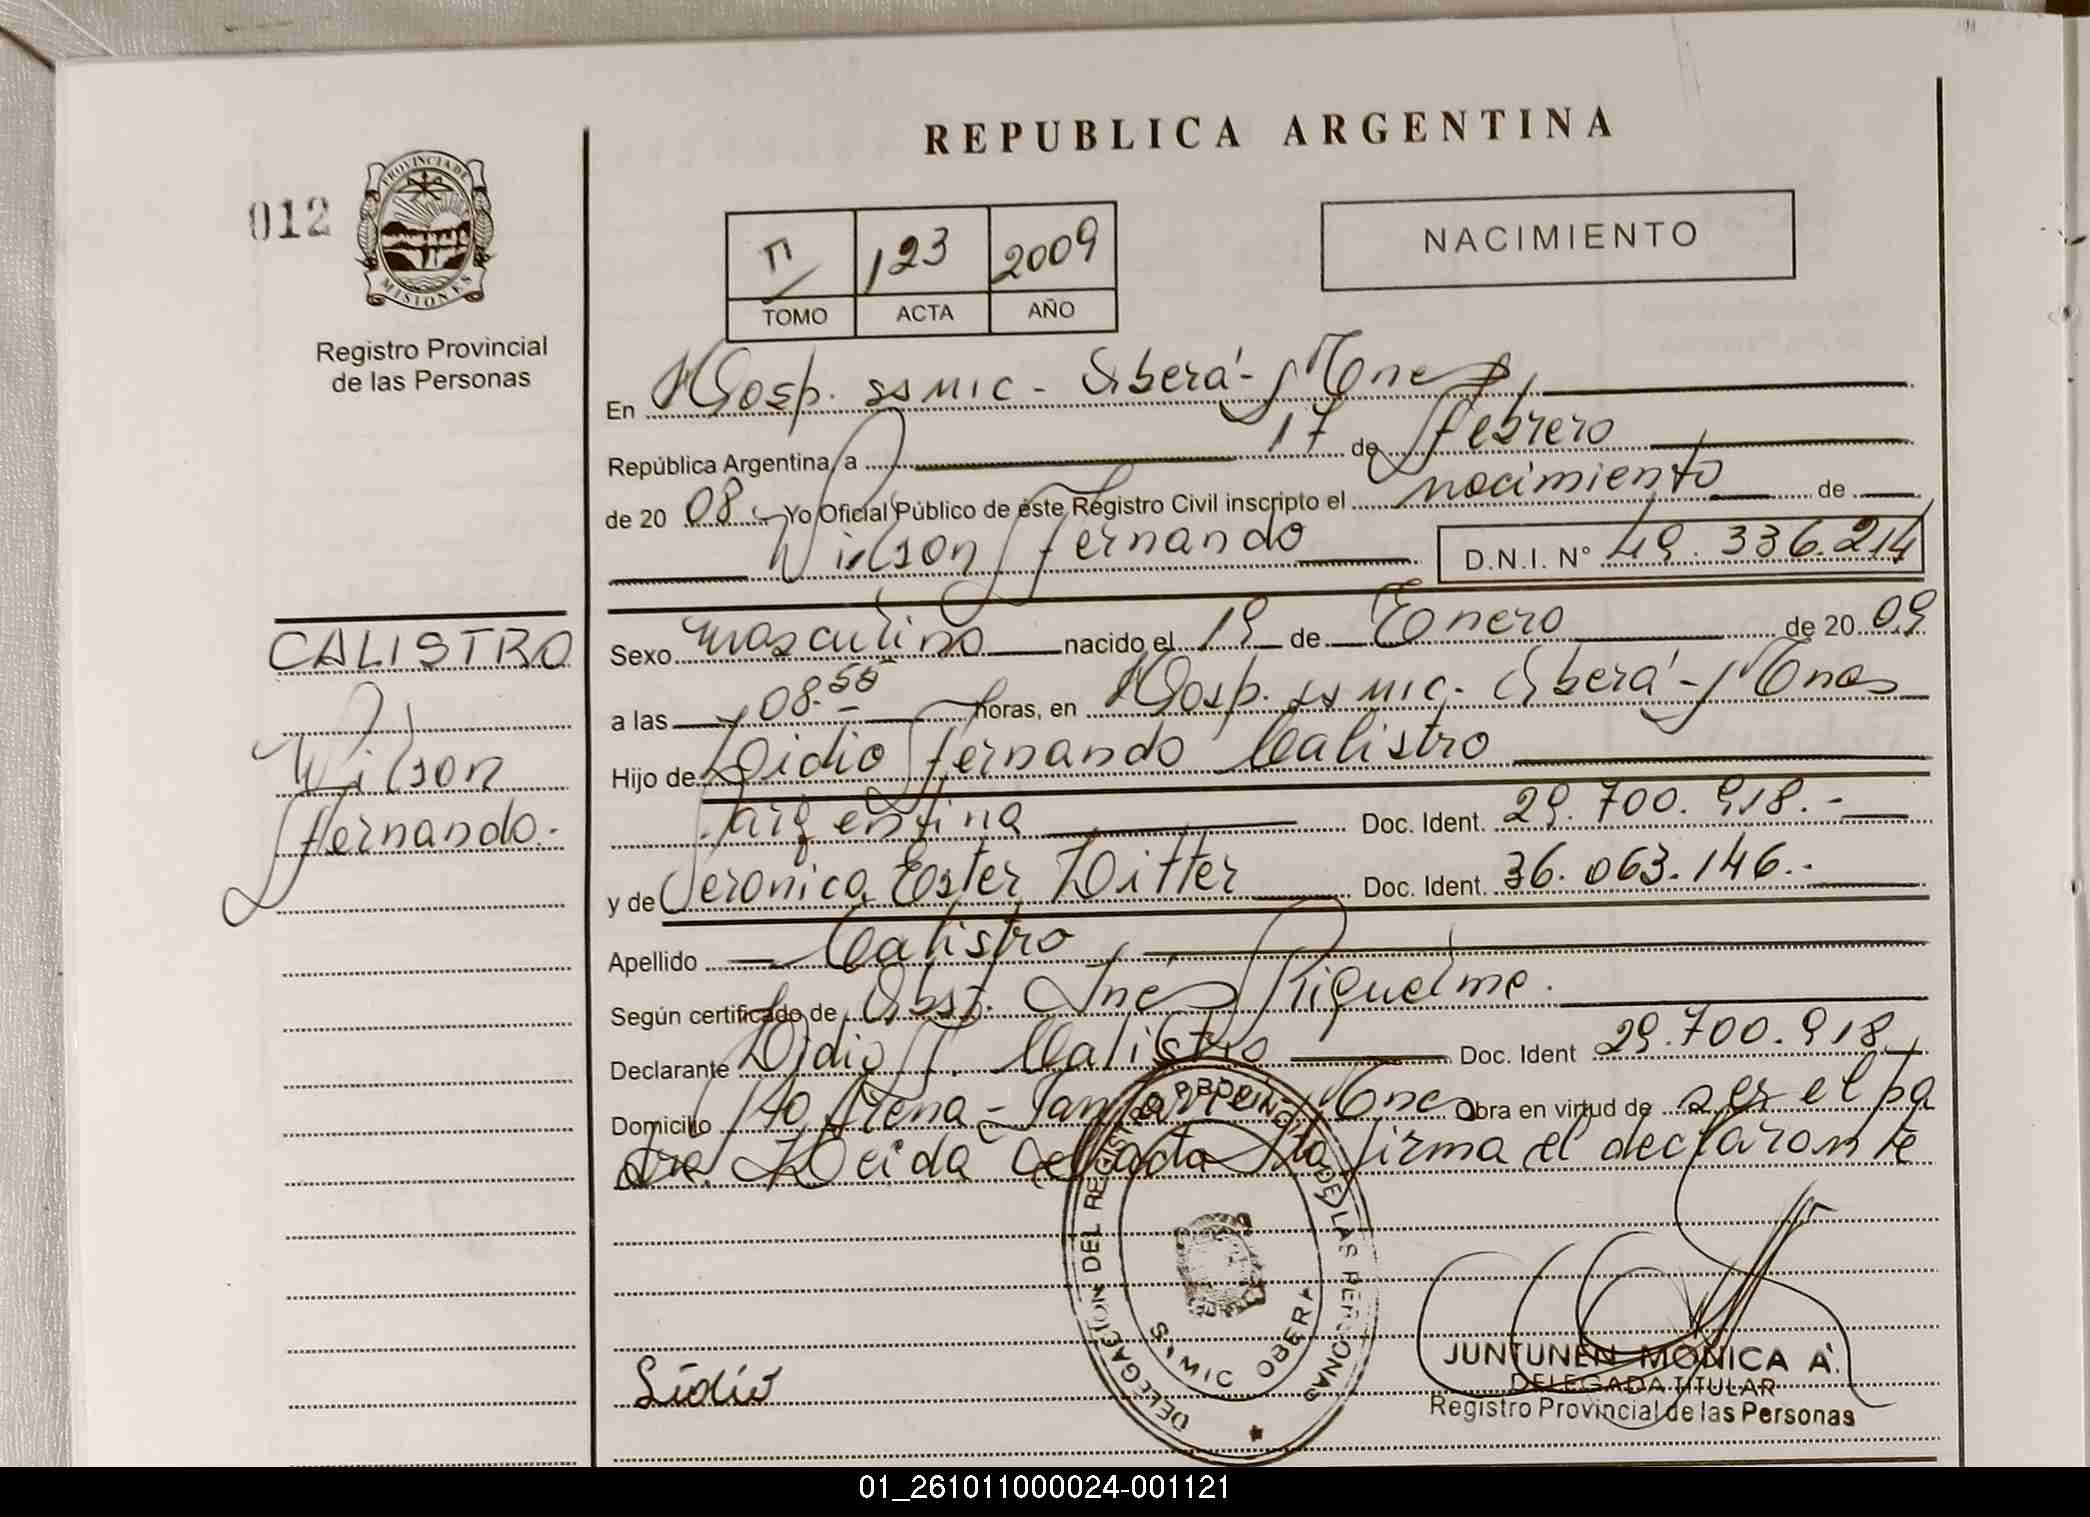 REPUBLICA ARGENTINA
012
PROVINCIA DE
MISIONES
Registro Provincial
de las Personas
123 2009
TOMO ACTA AÑO
NACIMIENTO
En Hosp. SSMIC - Oberá - Mnes
República Argentina, a 17 de febrero
de 2008 Yo Oficial Público de éste Registro Civil inscripto el nacimiento de
Wilson Fernando D.N.I. N° 49.336.214
CALISTRO
Wilson
Fernando.-
Sexo masculino nacido el 19 de Enero de 2009
a las 08.50 horas, en Hosp. ss MIC. Oberá - Mnes
Hijo de Lidio Fernando Calistro
argentina Doc. Ident. 29.700.918.-
y de Veronica Ester Ditter Doc. Ident. 36.063.146.-
Apellido Calistro
Según certificado de Obst. Inés Riquelme.
Declarante Lidio F. Calistro Doc. Ident 29.700.918
Domicilio Mnes Obra en virtud de ser el pa
dre. Leida la firma el declarante
DELEGACION DEL REGISTRO PROVINCIAL DE LAS PERSONAS
S.MIC OBERA
Lidio
JUNTUNEN MONICA A.
DELEGADA TITULAR
Registro Provincial de las Personas
01_261011000024-001121